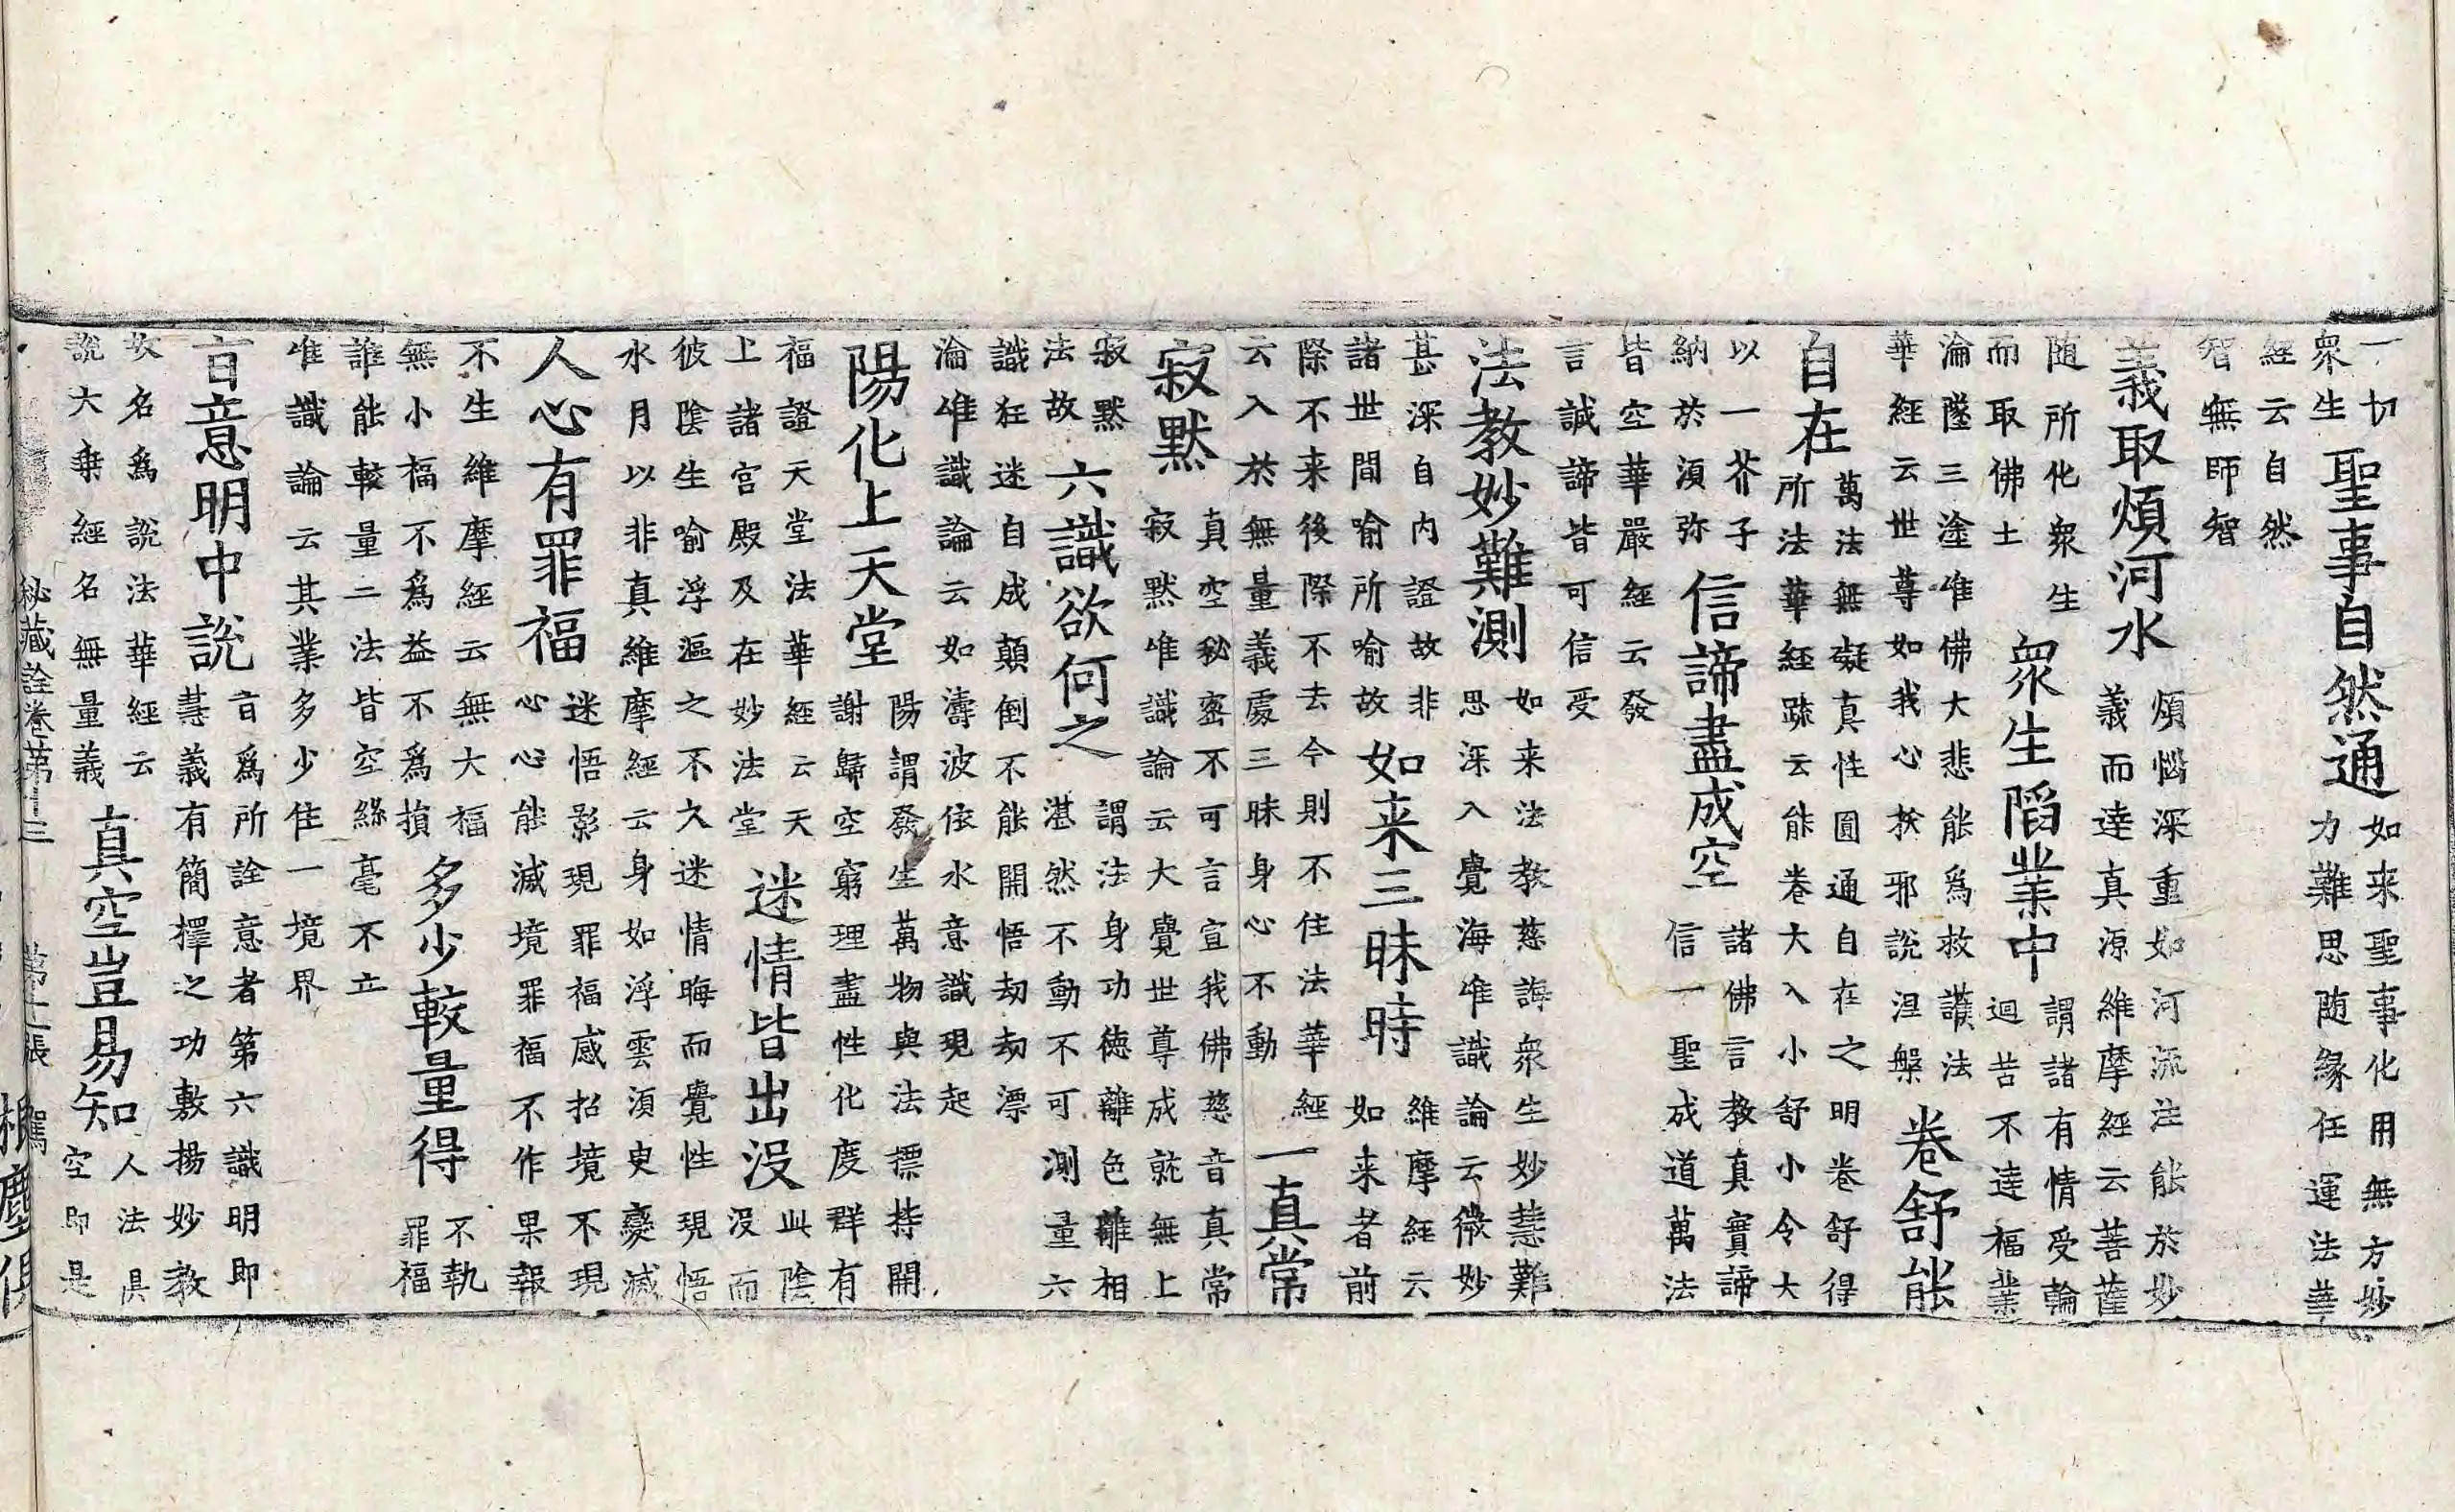 一切
衆生
聖事自然通
如来聖事化用無方妙
力難思随緣任運法華
經云自然
智無師智
義取煩河水
煩惱深重如河流注能於妙
義而達真源維摩經云菩薩
随所化衆生
而取佛土
衆生陷業中
謂諸有情受輪
迴苦不達福業
淪墜三塗唯佛大悲能爲救護法
華經云世尊如我心挾邪說涅槃
卷舒能
自在
萬法無礙真性圓通自在之明卷舒得
所法華經疏云能卷大入小舒小令大
以一芥子
納於須弥
信諦盡成空
諸佛言教真實諦
信一聖成道萬法
皆空華嚴經云發
言誠諦皆可信受
法教妙難測
如来法教慈誨衆生妙慧難
思深入覺海唯識論云微妙
甚深自内證故非
諸世間喻所喻故
如来三昧時
維摩經云
如来者前
際不来後際不去今則不住法華經
云入於無量義處三昧身心不動
一真常
寂黙
真空秘密不可言宣我佛慈音真常
寂黙唯識論云大覺世尊成就無上
寂黙
法故
六識欲何之
謂法身功德離色離相
湛然不動不可測量六
識狂迷自成顛倒不能開悟劫劫漂
淪唯識論云如濤波依水意識現起
陽化上天堂
陽謂發生萬物與法摽持開
謝歸空窮理盡性化度群有
福證天堂法華經云天
上諸宮殿及在妙法堂
迷情皆出没
此陰
没而
彼陰生喻浮漚之不久迷情晦而覺性現悟
水月以非真維摩經云身如浮雲須臾變滅
人心有罪福
迷悟影現罪福感招境不現
心心能滅境罪福不作果報
不生維摩經云無大福
無小福不爲益不爲損
多少較量得
不執
罪福
誰能較量二法皆空絲毫不立
唯識論云其業多少住一境界
言意明中說
言爲所詮意者第六識明即
慧義有簡擇之功敷揚妙教
故名爲說法華經云
說大乗經名無量義
真空豈易知
人法俱
空即是
秘藏詮卷第十三